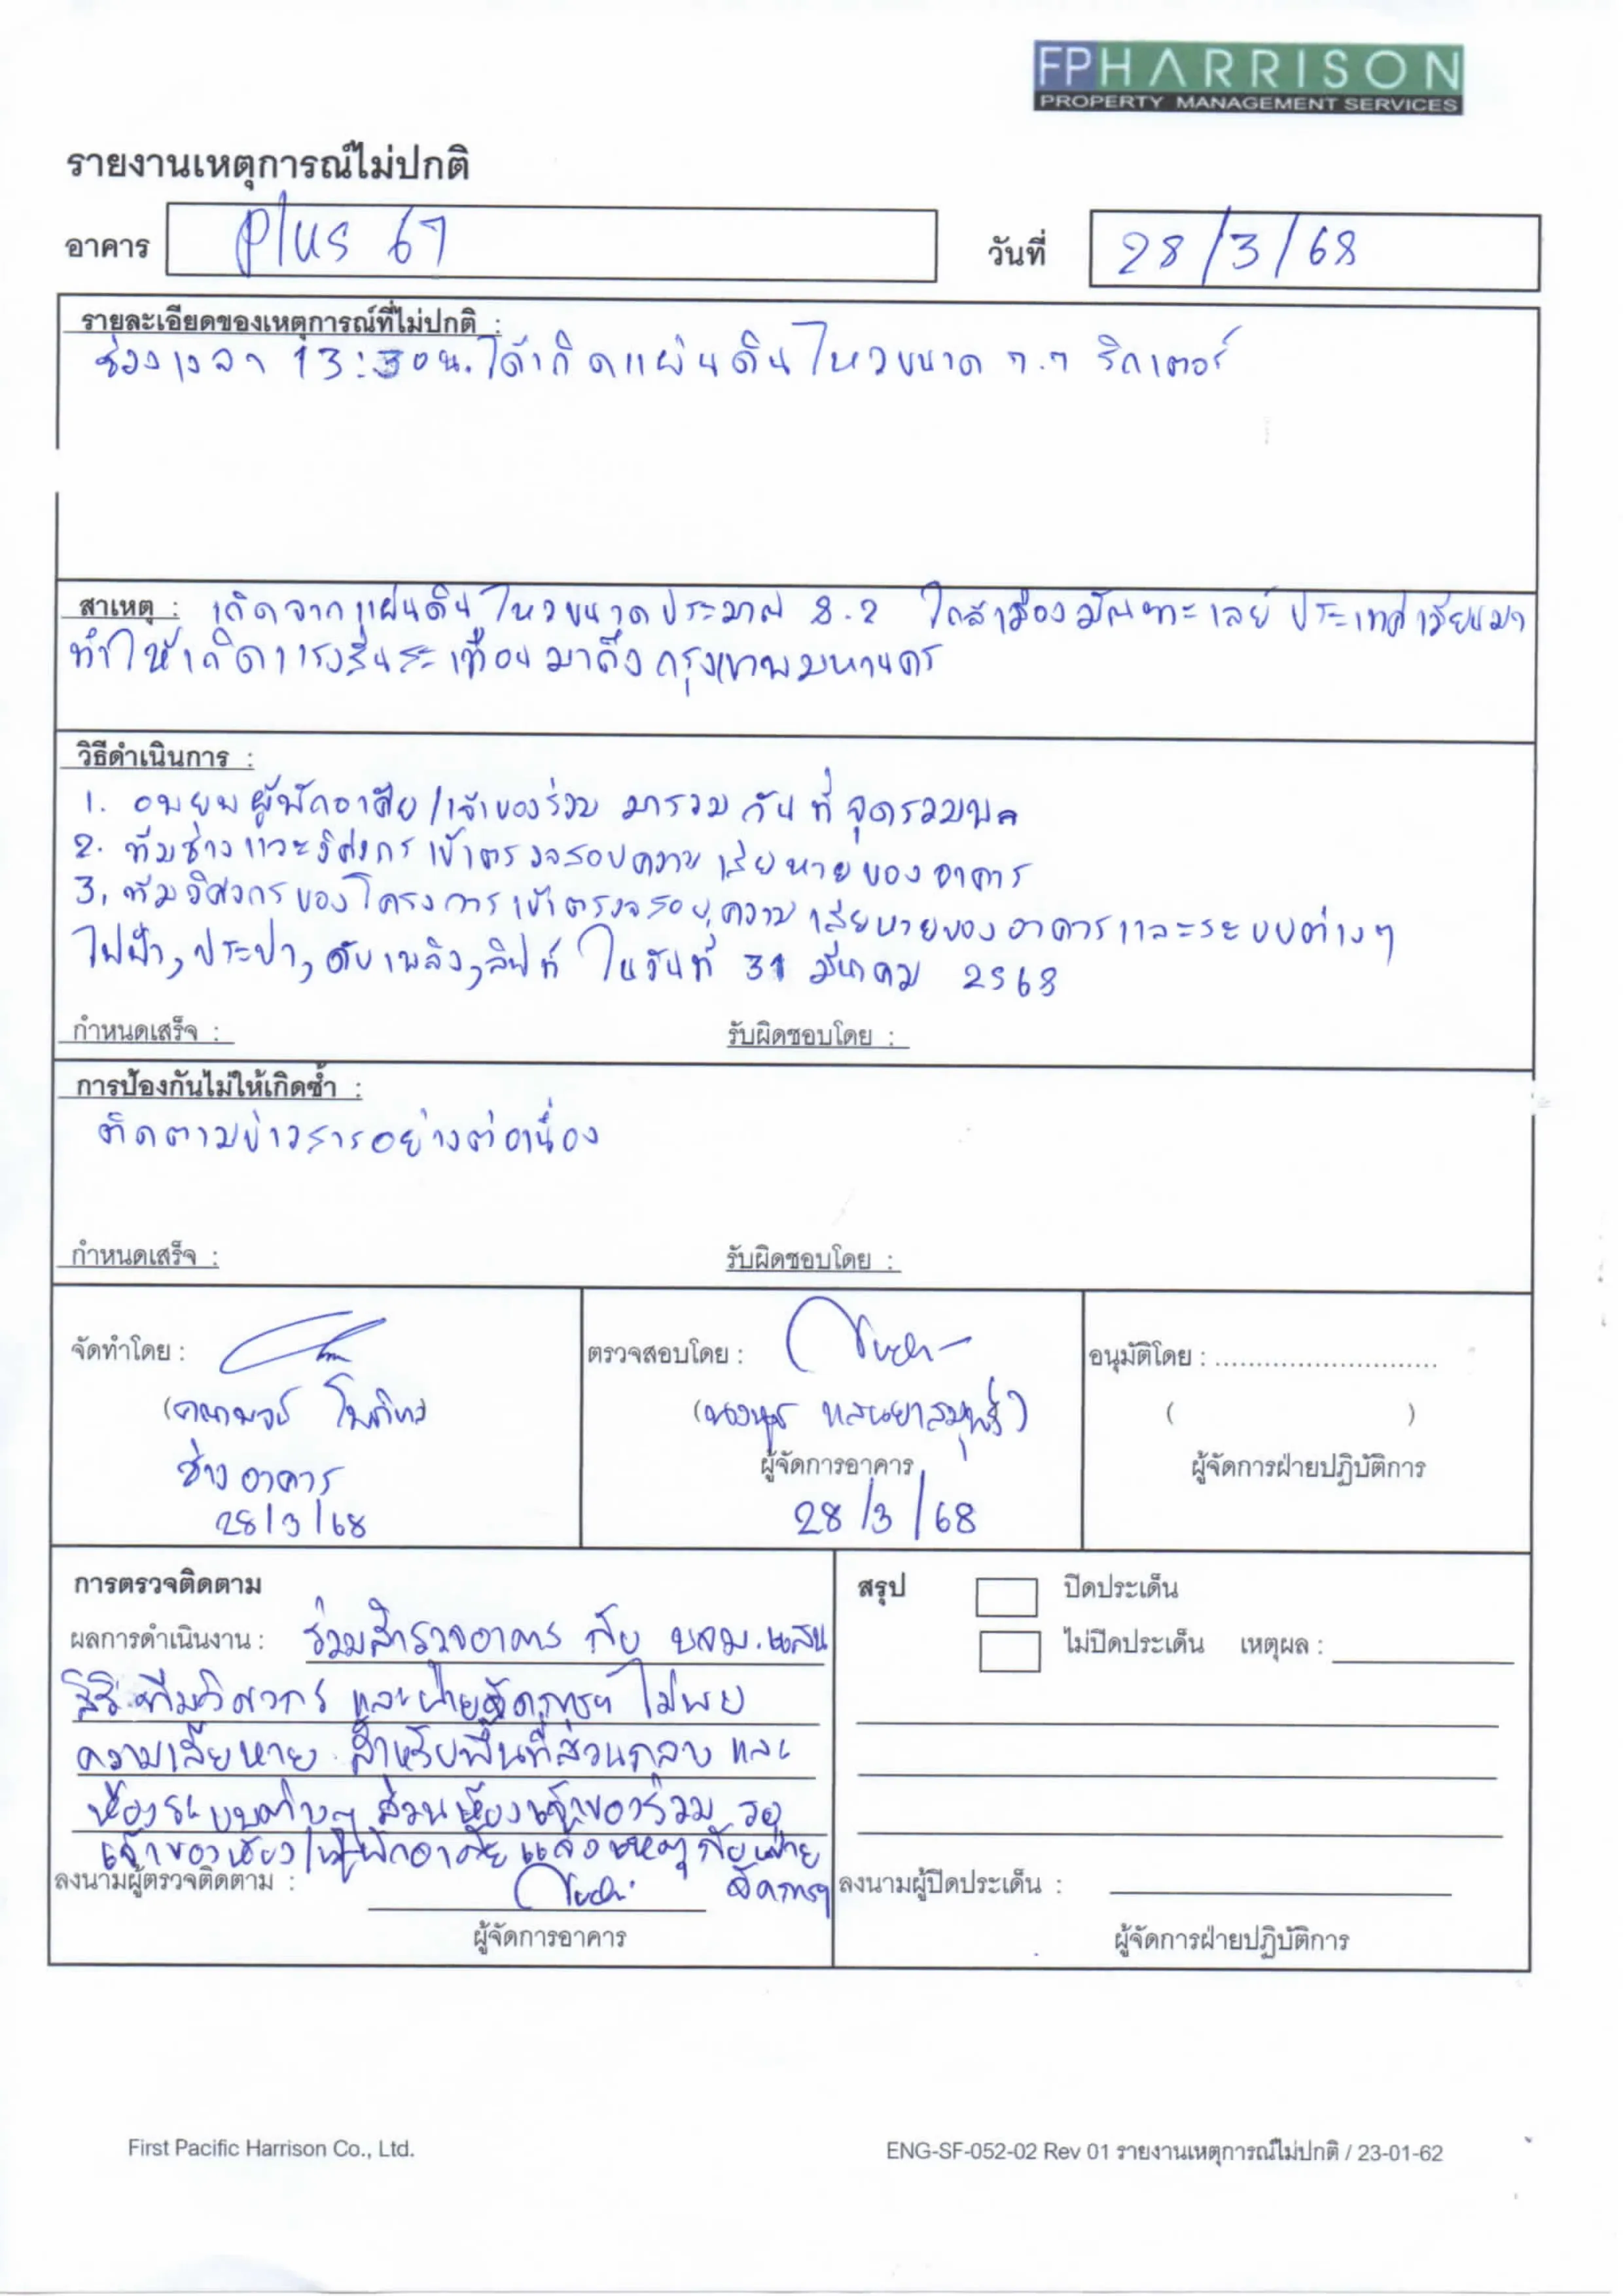 FPHARRISON
PROPERTY MANAGEMENT SERVICES
รายงานเหตุการณ์ไม่ปกติ
อาคาร Plus 67 วันที่ 28/3/68
รายละเอียดของเหตุการณ์ที่ไม่ปกติ :
ช่วงเวลา 13:30น. ได้เกิดแผ่นดินไหวขนาด 7.7 ริกเตอร์
สาเหตุ : เกิดจากแผ่นดินไหวขนาดประมาณ 8.2 ใกล้เมืองมัณฑะเลย์ ประเทศเมียนมา
ทำให้เกิดแรงสั่นสะเทือนมาถึงกรุงเทพมหานคร
วิธีดำเนินการ :
1. อพยพผู้พักอาศัย/เจ้าของร่วม มารวมกันที่จุดรวมพล
2. ทีมช่างและวิศวกรเข้าตรวจสอบความเสียหายของอาคาร
3. ทีมวิศวกรของโครงการเข้าตรวจสอบความเสียหายของอาคารและระบบต่างๆ
ไฟฟ้า, ประปา, ดับเพลิง, ลิฟท์ ในวันที่ 31 มีนาคม 2568
กำหนดเสร็จ : รับผิดชอบโดย :
การป้องกันไม่ให้เกิดซ้ำ :
ติดตามข่าวสารอย่างต่อเนื่อง
กำหนดเสร็จ : รับผิดชอบโดย :
จัดทำโดย : ตรวจสอบโดย : อนุมัติโดย : ...........................
( )
ช่างอาคาร ผู้จัดการอาคาร ผู้จัดการฝ่ายปฏิบัติการ
28/3/68 28/3/68
การตรวจติดตาม สรุป ปิดประเด็น
ผลการดำเนินงาน : ร่วมสำรวจอาคาร กับ บจม.แสน ไม่ปิดประเด็น เหตุผล :
สิริ ทีมวิศวกร และฝ่ายจัดการฯ ไม่พบ
ความเสียหาย สำหรับพื้นที่ส่วนกลาง และ
ห้องระบบต่างๆ ส่วนห้องเจ้าของร่วม รอ
เจ้าของห้อง/ผู้พักอาศัย แจ้งเหตุกับฝ่าย
จัดการฯ
ลงนามผู้ตรวจติดตาม : ลงนามผู้ปิดประเด็น :
ผู้จัดการอาคาร ผู้จัดการฝ่ายปฏิบัติการ
First Pacific Harrison Co., Ltd. ENG-SF-052-02 Rev 01 รายงานเหตุการณ์ไม่ปกติ / 23-01-62